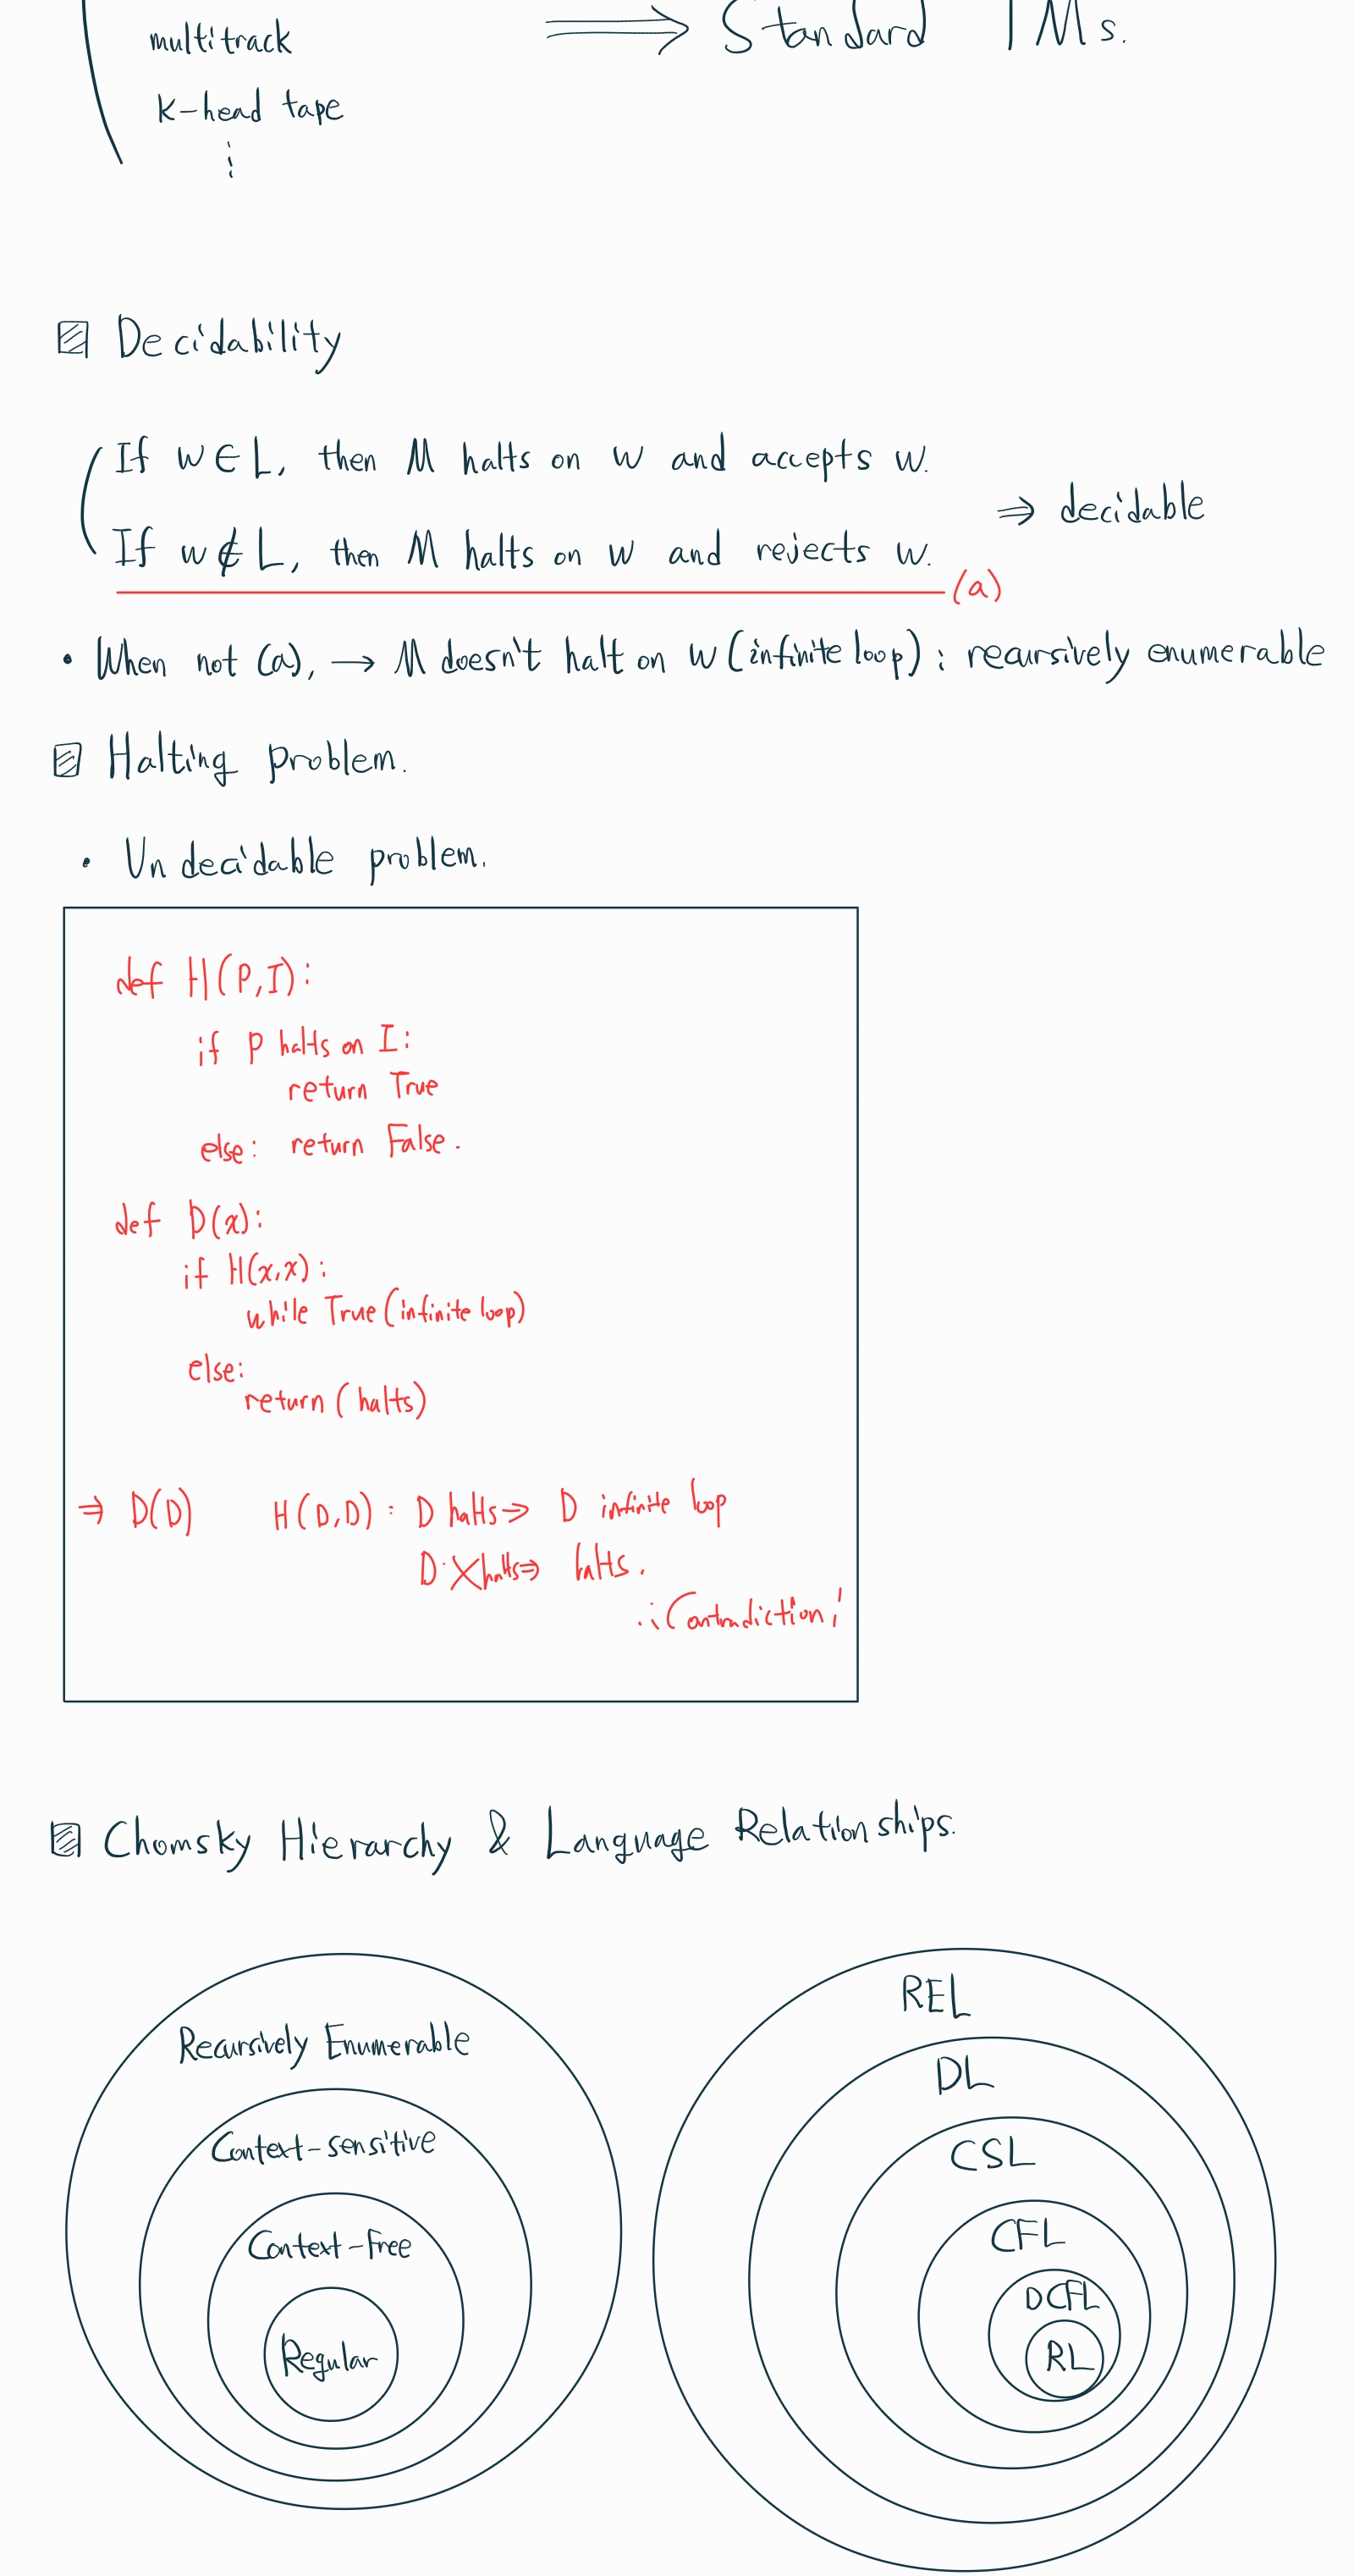 multitrack
⟹ Standard TMs.
k-head tape
⋮
Decidability
If w∈L, then M halts on w and accepts w.
If w∉L, then M halts on w and rejects w.
⇒ decidable
(a)
• When not (a), → M doesn't halt on w (infinite loop) : recursively enumerable
Halting problem.
• Undecidable problem.
def H(P,I):
if P halts on I:
return True
else: return False.
def D(x):
if H(x,x):
while True (infinite loop)
else:
return (halts)
⇒ D(D) H(D,D) : D halts ⇒ D infinite loop
D X halts ⇒ halts.
∴ Contradiction!
Chomsky Hierarchy & Language Relationships.
Recursively Enumerable
Context-sensitive
Context-Free
Regular
REL
DL
CSL
CFL
DCFL
RL